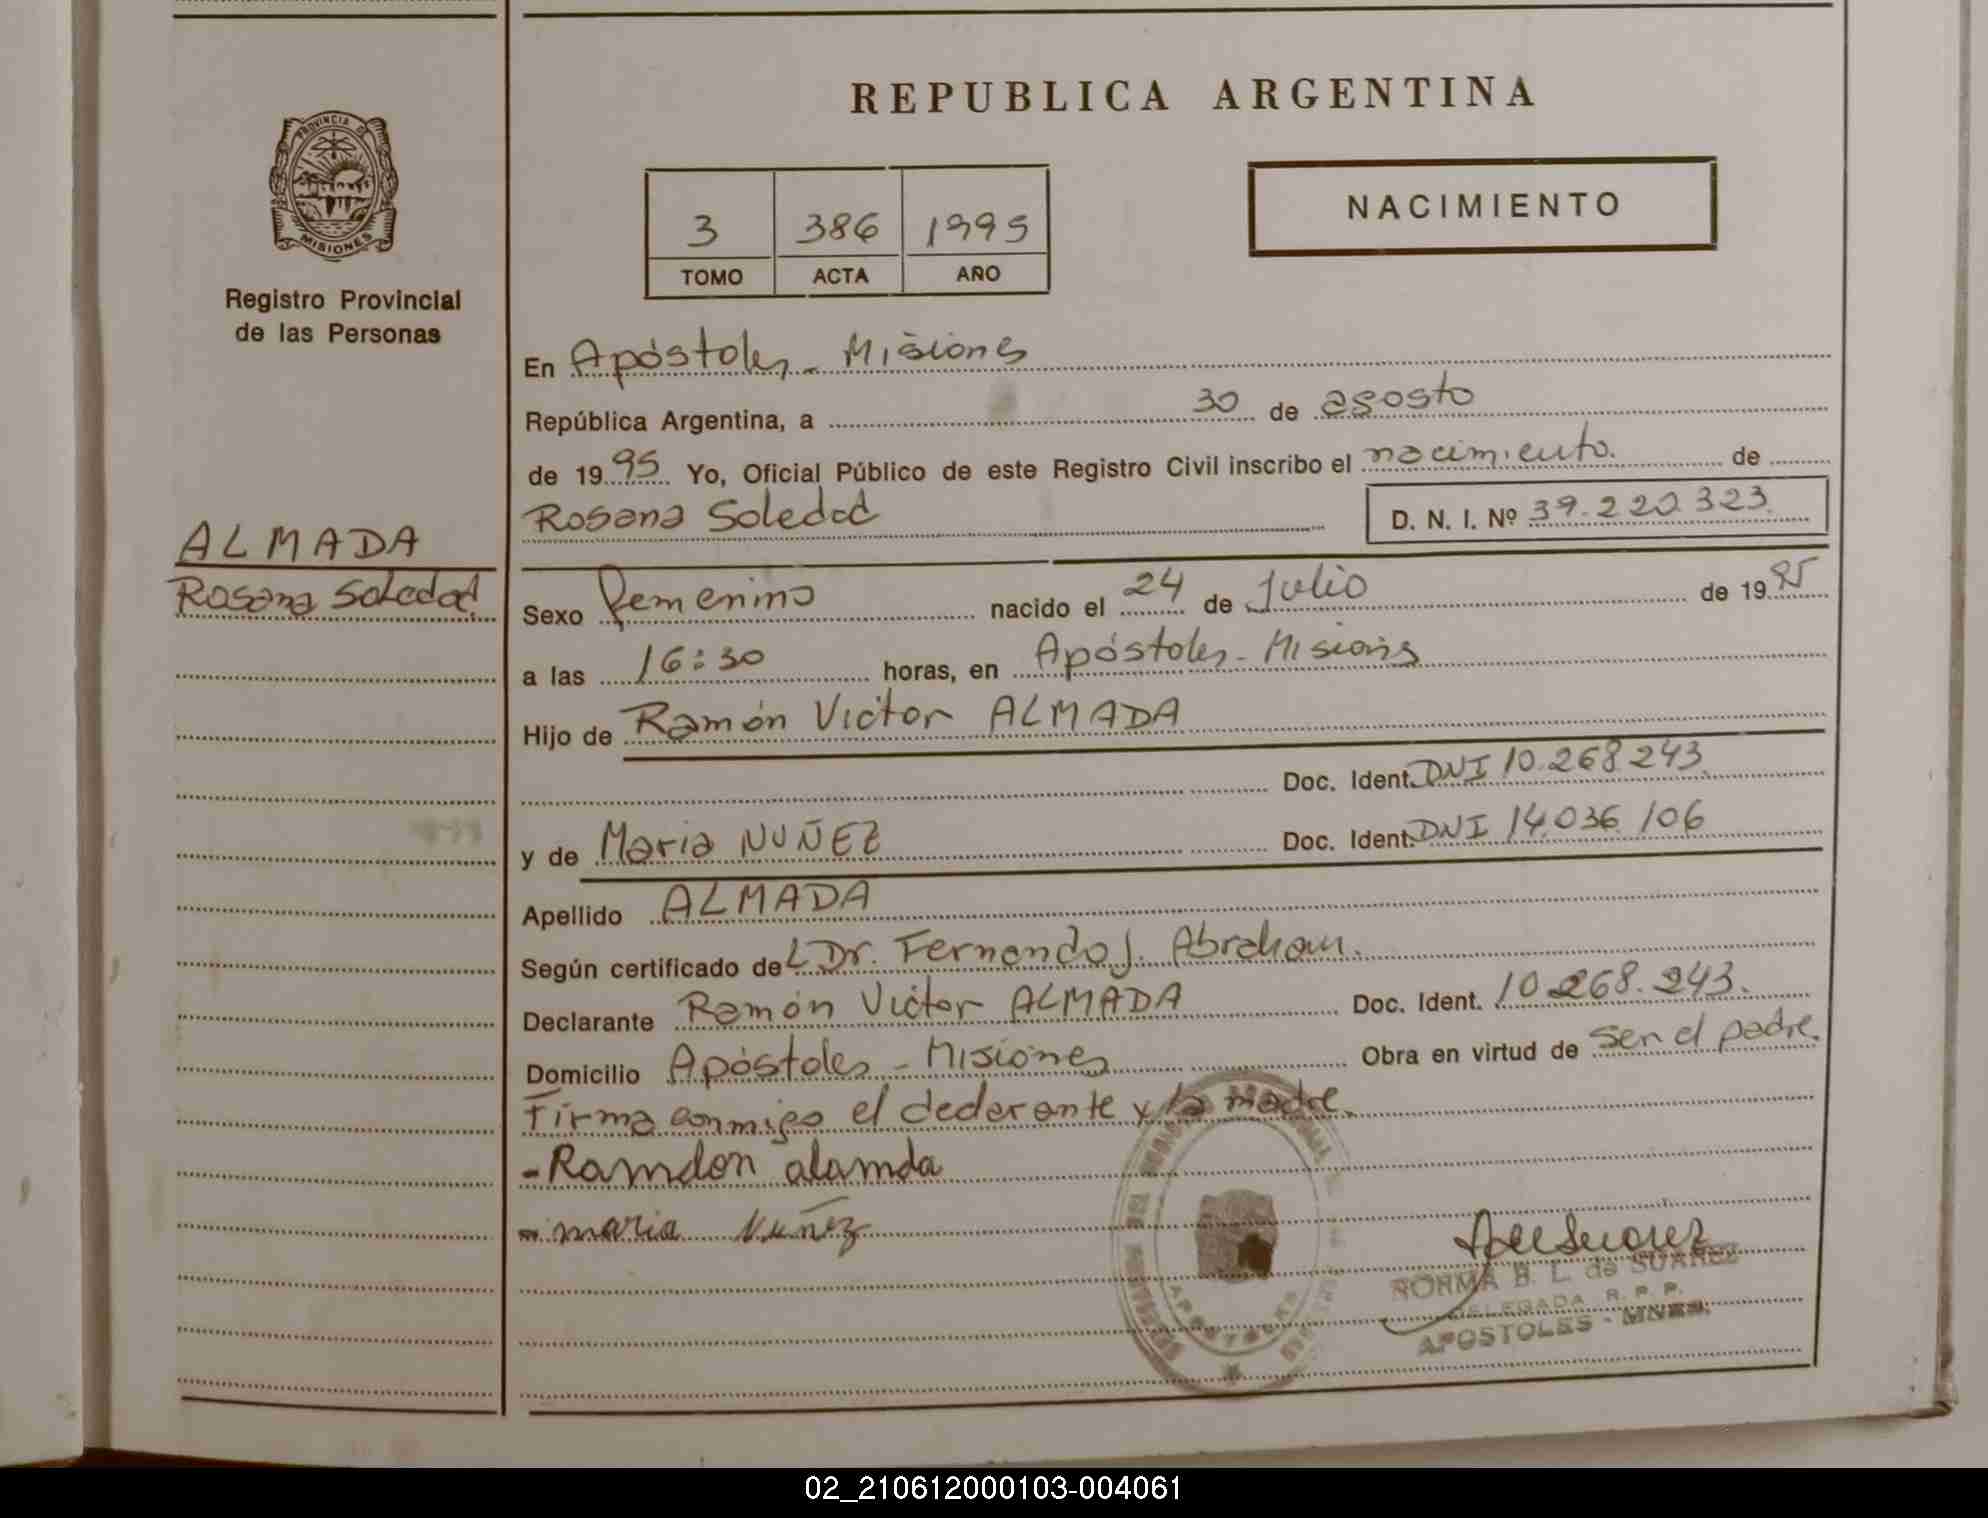 REPUBLICA ARGENTINA
PROVINCIA DE
MISIONES
Registro Provincial
de las Personas
3 386 1995
TOMO ACTA AÑO
NACIMIENTO
En Apóstoles - Misiones
República Argentina, a 30 de agosto
de 1995 Yo, Oficial Público de este Registro Civil inscribo el nacimiento. de
Rosana Soledad D. N. I. Nº 39.220.323
ALMADA
Rosana Soledad.
Sexo femenino nacido el 24 de Julio de 1995
a las 16:30 horas, en Apóstoles - Misiones
Hijo de Ramón Victor ALMADA
Doc. Ident. DNI 10.268.243
y de Maria NUÑEZ Doc. Ident. DNI 14.036.106
Apellido ALMADA
Según certificado del Dr. Fernando J. Abraham.
Declarante Ramón Victor ALMADA Doc. Ident. 10.268.243.
Domicilio Apóstoles - Misiones Obra en virtud de ser el padre.
Firma conmigo el declarante y la madre.
- Ramdon alamda
- maria Nuñez
NORMA B. L. de SUAREZ
DELEGADA R. P. P.
APOSTOLES - MNES.
APOSTOLES
02_210612000103-004061